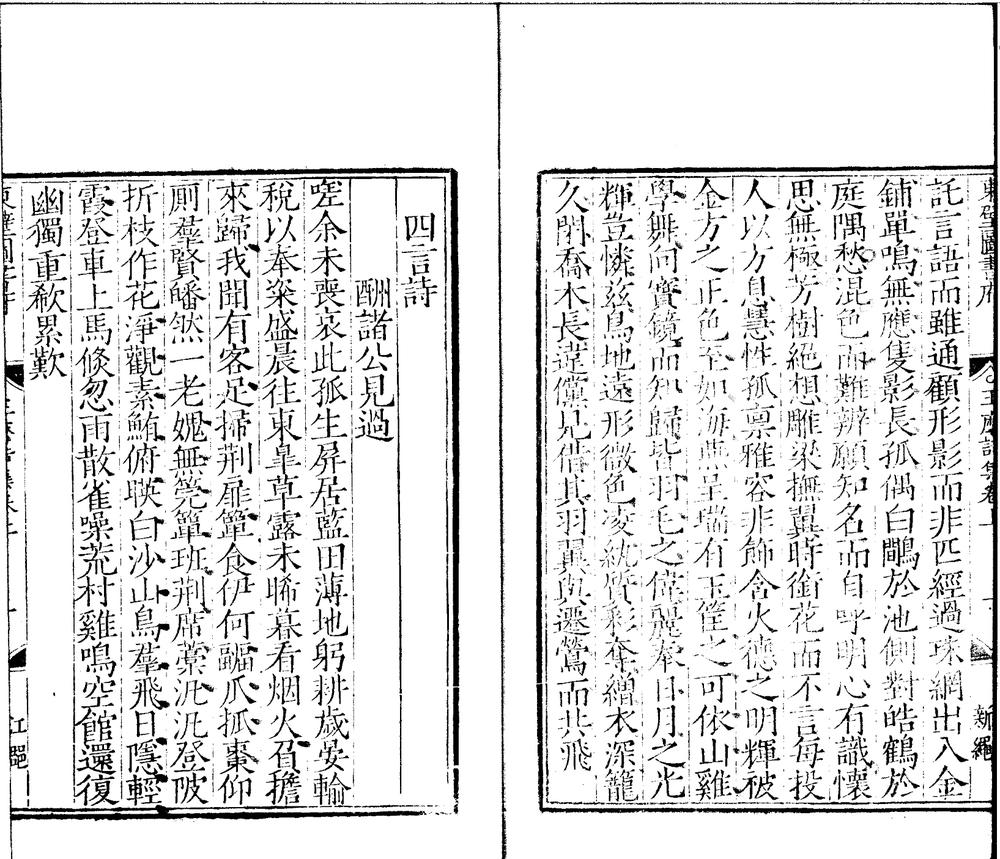 東壁圖書府
王右丞詩集卷一
新繩
託言語而雖通顧形影而非匹經過珠網出入金
鋪單鳴無應隻影長孤偶白鷴於池側對皓鶴於
庭隅愁混色而難辨願知名而自呼明心有識懷
思無極芳樹絕想雕梁撫翼時銜花而不言每投
人以方息慧性孤稟雅容非飾含火德之明輝被
金方之正色至如海燕呈瑞有玉筐之可依山雞
學舞向寶鏡而知歸皆羽毛之偉麗奉日月之光
輝豈憐茲鳥地遠形微色凌紈質彩奪繒衣深籠
久閉喬木長違儻見借其羽翼與遷鶯而共飛
四言詩
酬諸公見過
嗟余未喪哀此孤生屏居藍田薄地躬耕歲晏輸
稅以奉粢盛晨往東皐草露未晞暮看烟火負擔
來歸我聞有客足掃荆扉簞食伊何疈瓜抓棗仰
厠羣賢皤然一老媿無筦簟班荆席藁汎汎登陂
折枝作花淨觀素鮪俯暎白沙山鳥羣飛日隱輕
霞登車上馬倏忽雨散雀噪荒村雞鳴空館還復
幽獨重欷累歎
東壁圖書府
江聰